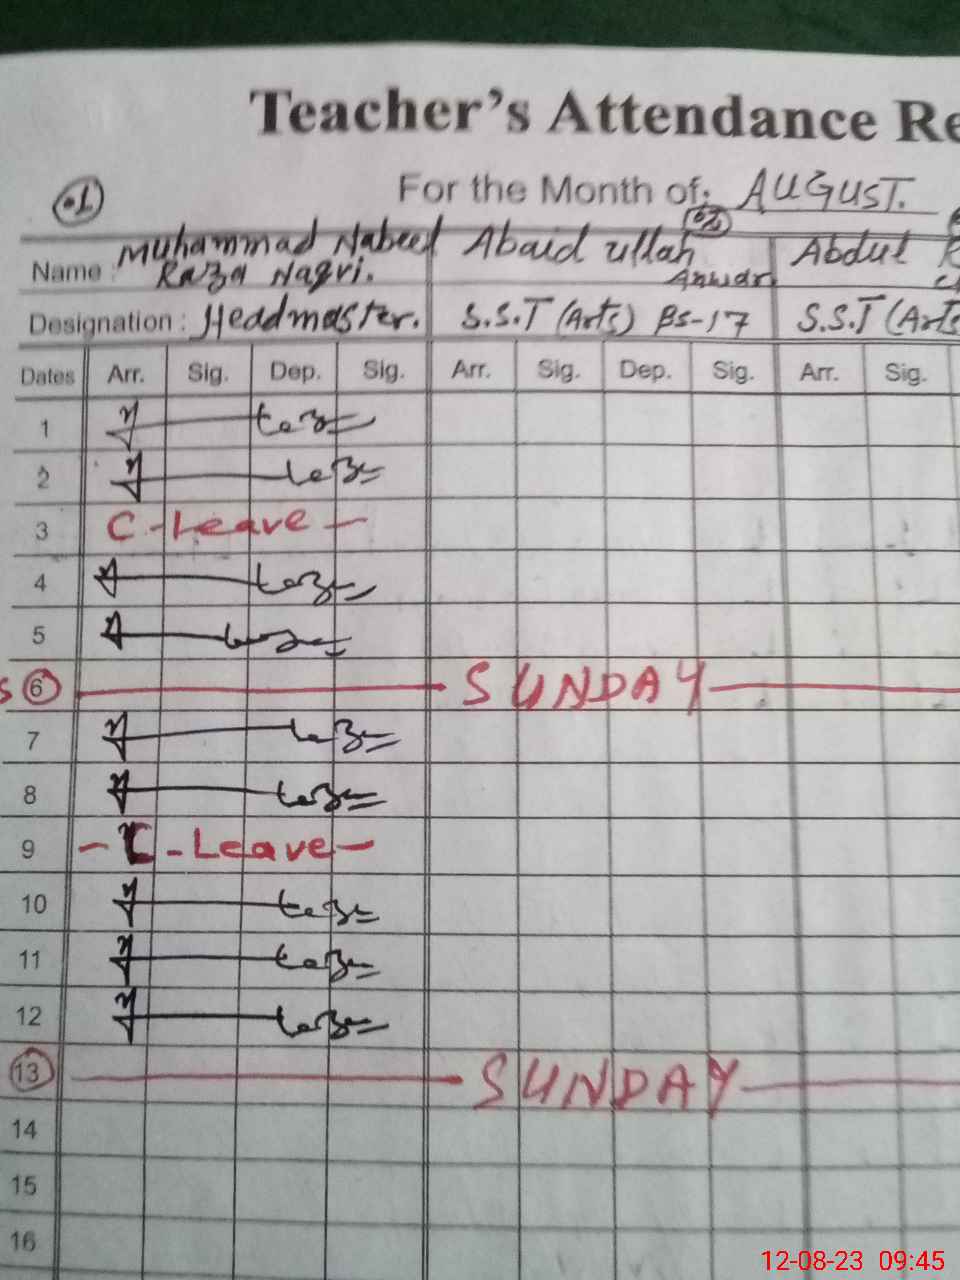 Teacher's Attendance Re
01
For the Month of: AUGUST.
02
Name : Muhammad Nabeel Raza Naqvi. Abaid ullah Anwar Abdul
Designation : Headmaster. S.S.T (Arts) BS-17 S.S.T (Arts
Dates Arr. Sig. Dep. Sig. Arr. Sig. Dep. Sig. Arr. Sig.
1
2
3 C-Leave -
4
5
S 6 SUNDAY
7
8
9 - C-Leave -
10
11
12
13 SUNDAY
14
15
16
12-08-23 09:45